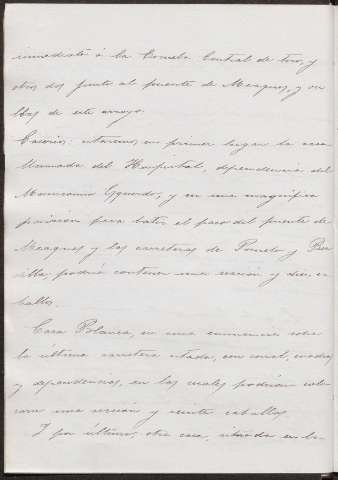 inmediato á la Escuela Central de tiro, y
otros dos junto al puente de Meaques, y ori
llas de este arroyo.
Caserios: citaremos en primer lugar la casa
llamada del Hospital, dependencia del
Manicomio Esquerdo, y en una magnifica
posición para batir el paso del puente de
Meaques y las carreteras de Pozuelo y Boa
dilla, podria contener una sección y diez ca
ballos.
Casa Blanca, en una eminencia sobre
la última carretera citada, con corral, cuadras
y dependencias, en las cuales podrian colo
carse una sección y veinte caballos.
Y por último, otra casa, situada en la